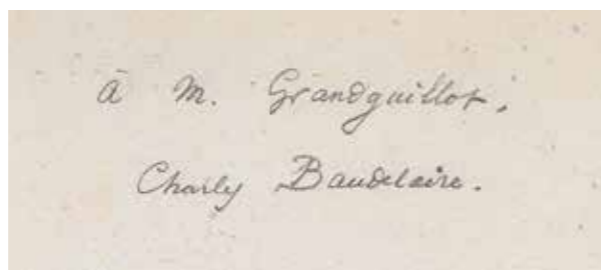 à M. Grandguillot.
Charly Baudelaire.